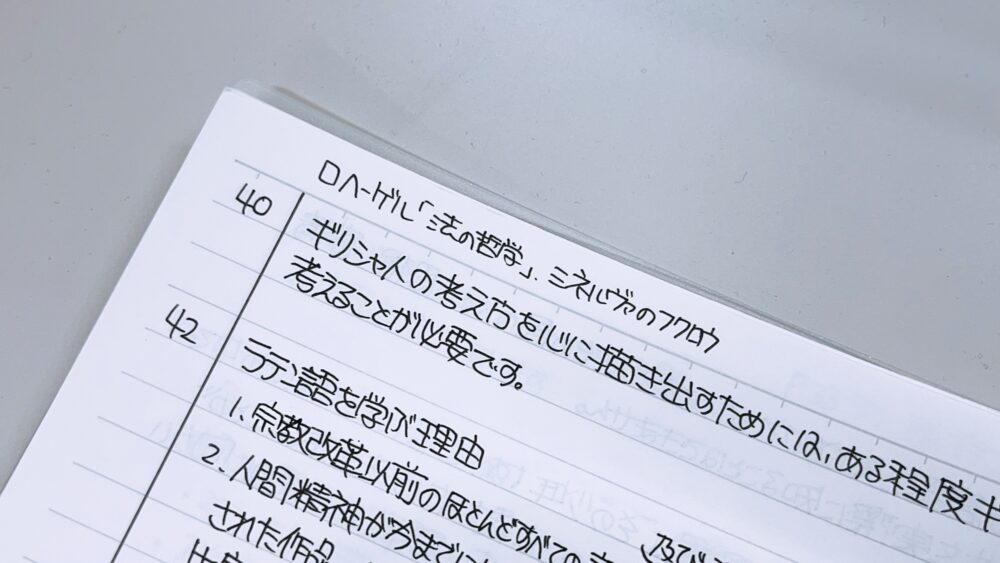 ロヘーゲル「法の哲学」、ミネルヴァのフクロウ
40 ギリシャ人の考え方を心に描き出すためには、ある程度ギ
考えることが必要です。
42 ラテン語を学ぶ理由
1. 宗教改革以前のほとんどすべての
及び
2. 人間精神が今までに
された作品